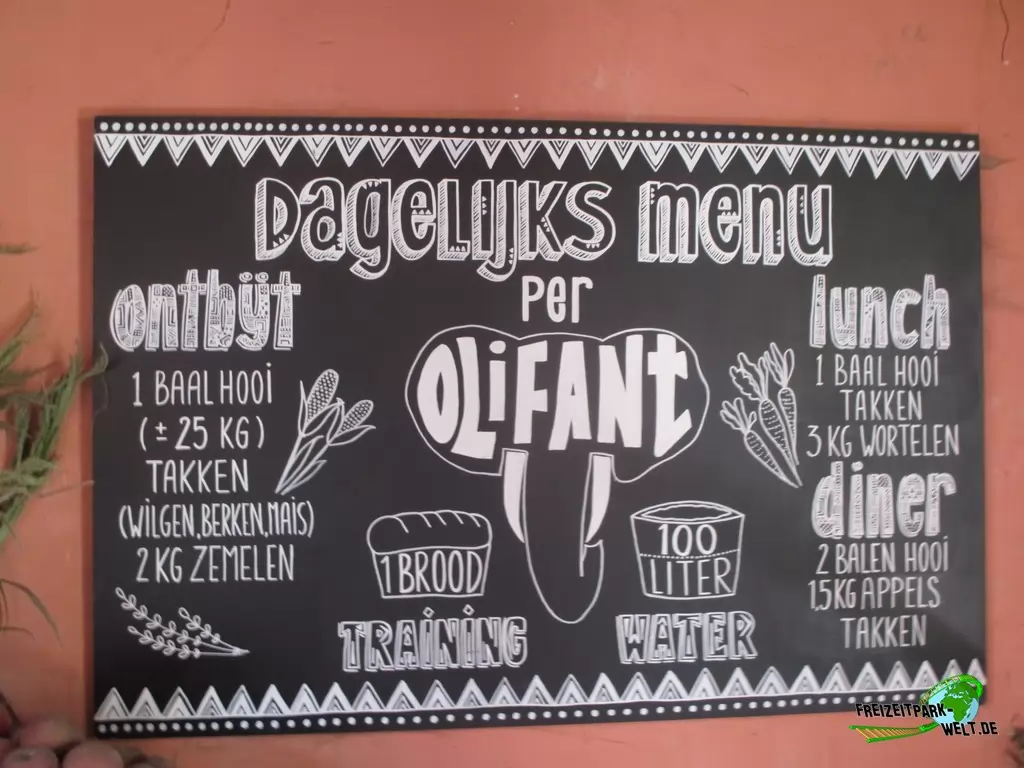 DagELIJKS menu
per
OLiFANt
ontbijt
1 BAAL HOOi
(± 25 KG)
TAKKEN
(WiLGEN, BERKEN, MAïS)
2 KG ZEMELEN
1 BROOD
TRAiNiNG
100
LITER
WATER
lunch
1 BAAL HOOi
TAKKEN
3 KG WORTELEN
diner
2 BALEN HOOi
1,5 KG APPELS
TAKKEN
FREIZEITPARK-
WELT.DE